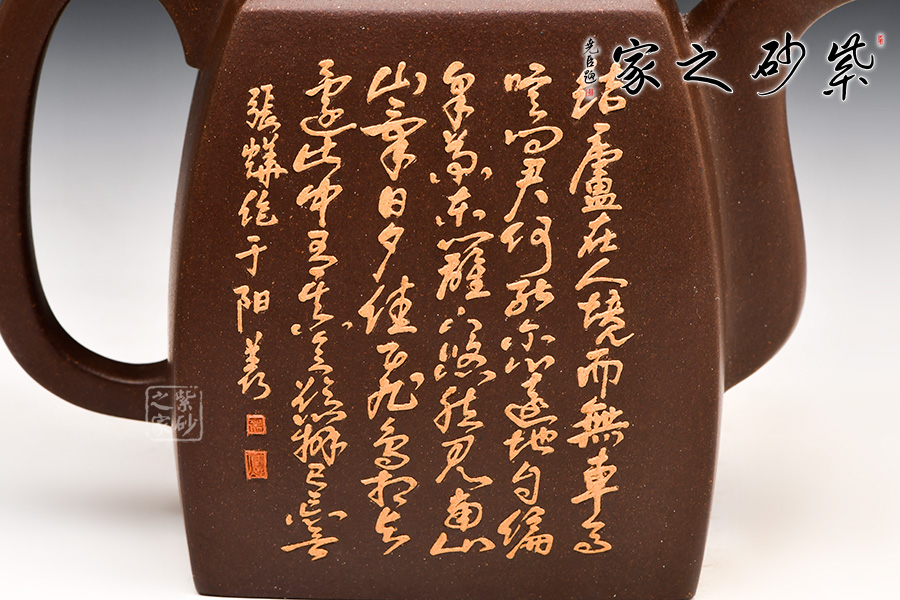 紫砂之家
结廬在人境而無車馬
喧问君何能尔心遠地自偏
采菊东籬下悠然见南山
山氣日夕佳飞鸟相与
還此中有真意欲辨已忘言
張燁作于阳羡
紫砂
之家